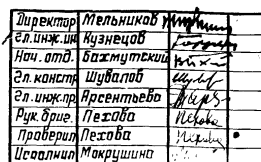 Директор Мельников
Гл.инж.ин Кузнецов
Нач. отд. Бахмутский
Гл. констр Шувалов
Гл.инж.пр. Арсентьева
Рук. бриг. Пехова Пехова
Проверил Пехова Пехова
Исполнил Мокрушина